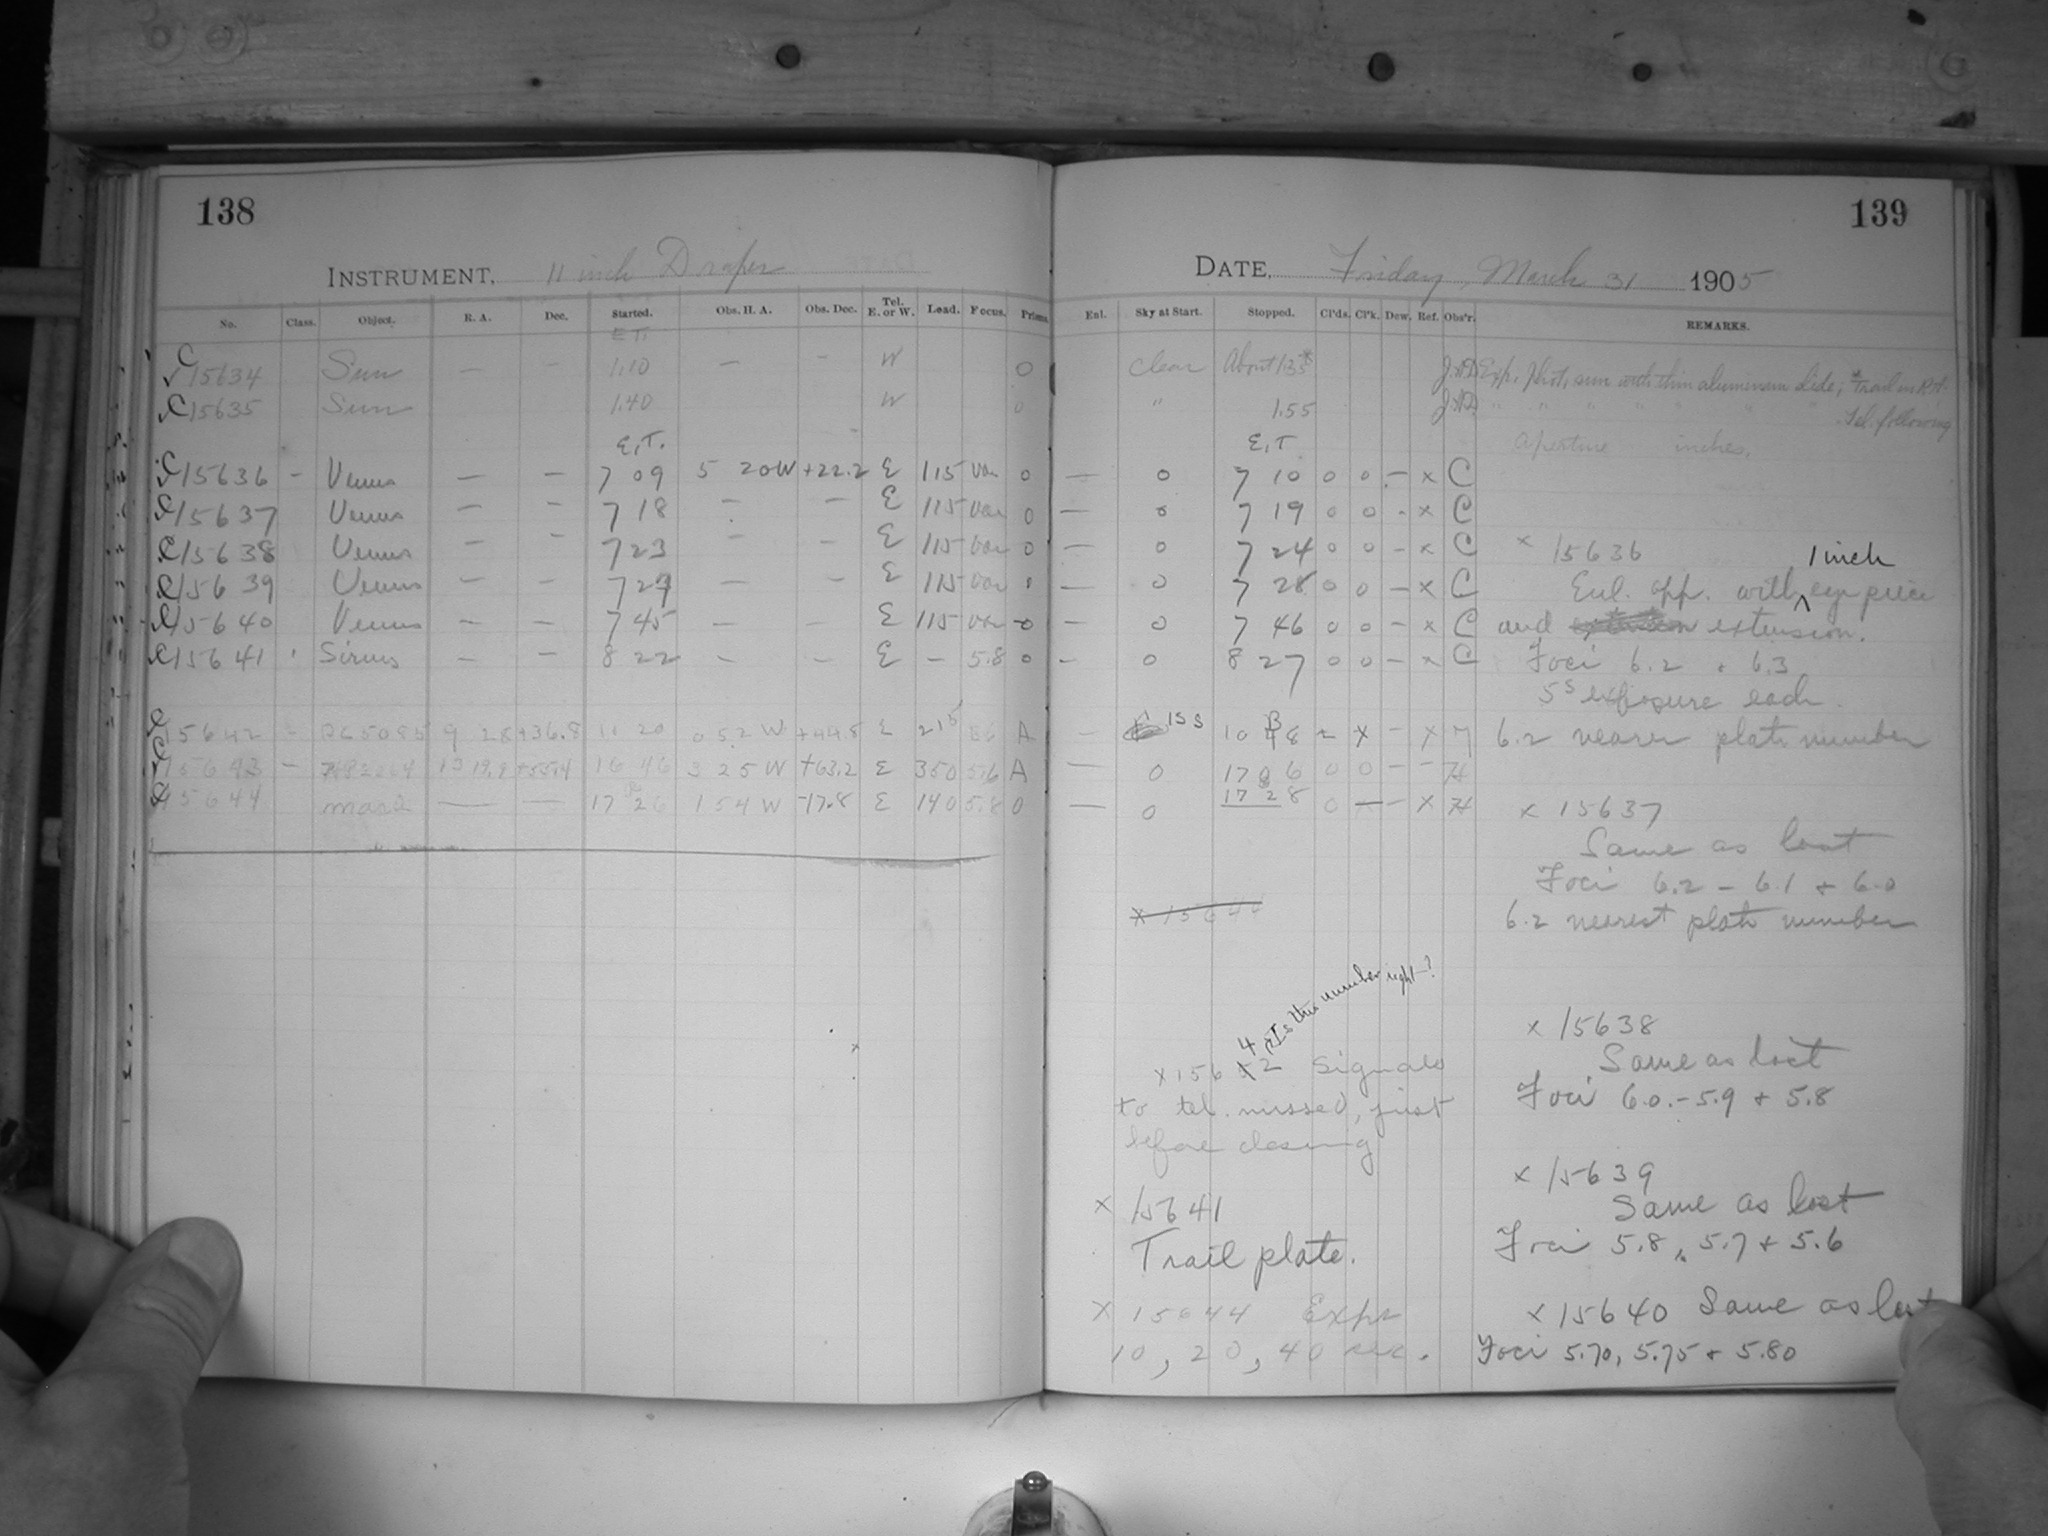 138
INSTRUMENT, 11 inch Draper
No. Class. Object. R. A. Dec. Started. Obs. H. A. Obs. Dec. Tel. E. or W. Lead. Focus. Prisms.
E.T.
C 15634 Sun — — 1.10 — — W 0
C 15635 Sun 1.40 W 0
E.T.
C 15636 — Venus — — 7 09 5 20W +22.2 E 115 var 0
C 15637 Venus — — 7 18 — — E 115 var 0
C 15638 Venus — — 7 23 — — E 115 var 0
C 15639 Venus — — 7 27 — — E 115 var
C 15640 Venus — — 7 45 — — E 115 var 0
C 15641 Sirius — — 8 22 — — E — 5.8 0
C 15642 — 9 28 +36.8 20 0 52 W +44.8 E 215 A
C 15643 — +55.4 16 46 3 25 W +63.2 E 350 5.6 A
C 15644 — — 17 26 1 54 W -17.8 E 140 5.8 0
139
DATE, Friday, March 31 1905
Enl. Sky at Start. Stopped. Cl'ds. Cl'k. Dew. Ref. Obs'r. REMARKS.
Clear About 1.35* Exp. phot. sun with thin aluminum slide; *Trail in R.A.
" 1.55 Tel. following
E.T. aperture inches.
— 0 7 10 0 0 — x C
— 0 7 19 0 0 - x C
— 0 7 24 0 0 — x C
— 0 7 28 0 0 — x C
— 0 7 46 0 0 — x C
— 0 8 27 0 0 — x C
— 155 10 8 x — x
— 0 17 06 0 0 — — H
— 0 17 28 0 — — x H
x 15636
Enl. app. with 1 inch eye piece
and extension.
Foci 6.2 + 6.3
5s exposure each.
6.2 nearer plate number
x 15637
Same as last
Foci 6.2 - 6.1 + 6.0
6.2 nearest plate number
x 15638
Same as last
Foci 6.0 - 5.9 + 5.8
x 15639
Same as last
Foci 5.8, 5.7 + 5.6
x 15640 Same as last
Foci 5.70, 5.75 + 5.80
x 15644
Is this number right?
x 15642 Signals
to tel. missed, just
before closing
x 15641
Trail plate.
x 15644 Exps
10, 20, 40 sec.